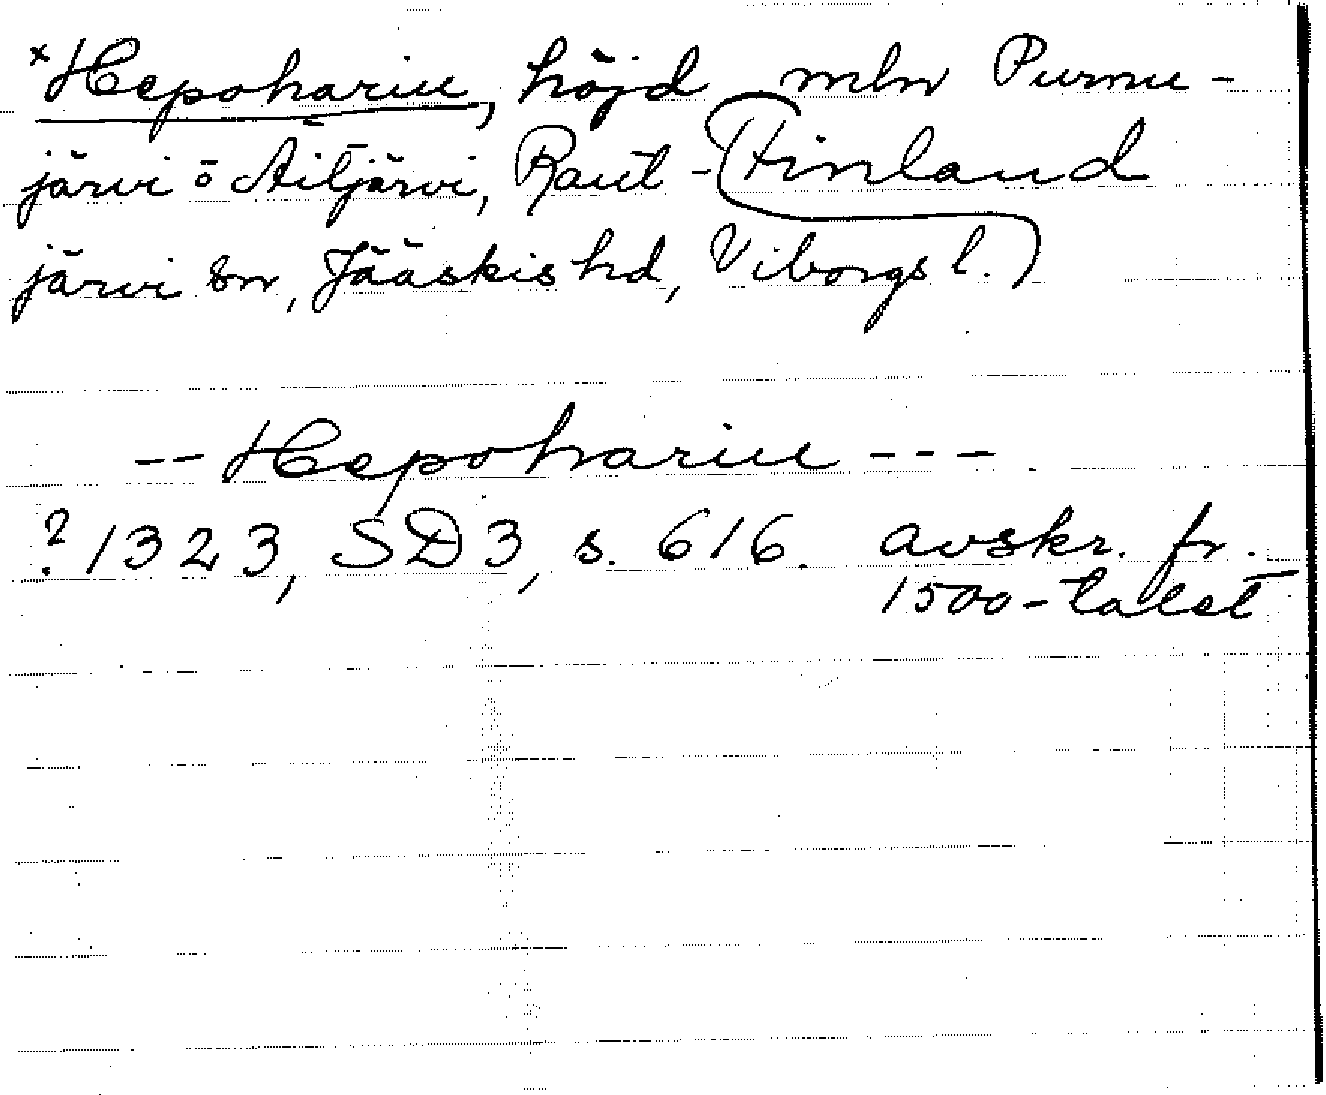 ×Hepohariu, höjd mln Purnu-
järvi o Äitjärvi, Raut- Finland
järvi sn, Jääskis hd, Viborgs l.)
-- Hepohariu ---
? 1323, SD 3, s. 616. avskr. fr.
1500-talet